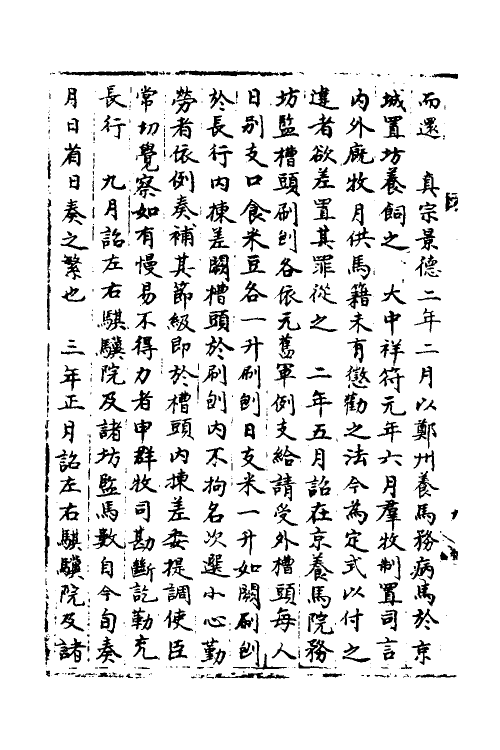 而還　真宗景德二年二月以鄭州養馬務病馬於京
城置坊養飼之　大中祥符元年六月羣牧制置司言
內外廐牧月供馬籍未有懲勸之法今為定式以付之
違者欲差置其罪從之　二年五月詔在京養馬院務
坊監槽頭刷刨各依元舊軍例支給請受外槽頭每人
日別支口食米豆各一升刷刨日支米一升如闕刷刨
於長行內揀差闕槽頭於刷刨內不拘名次選小心勤
勞者依例奏補其節級即於槽頭內揀差委提調使臣
常切覺察如有慢易不得力者申群牧司勘斷訖勒充
長行　九月詔左右騏驥院及諸坊監馬數自今旬奏
月日者日奏之繁也　三年正月詔左右騏驥院及諸